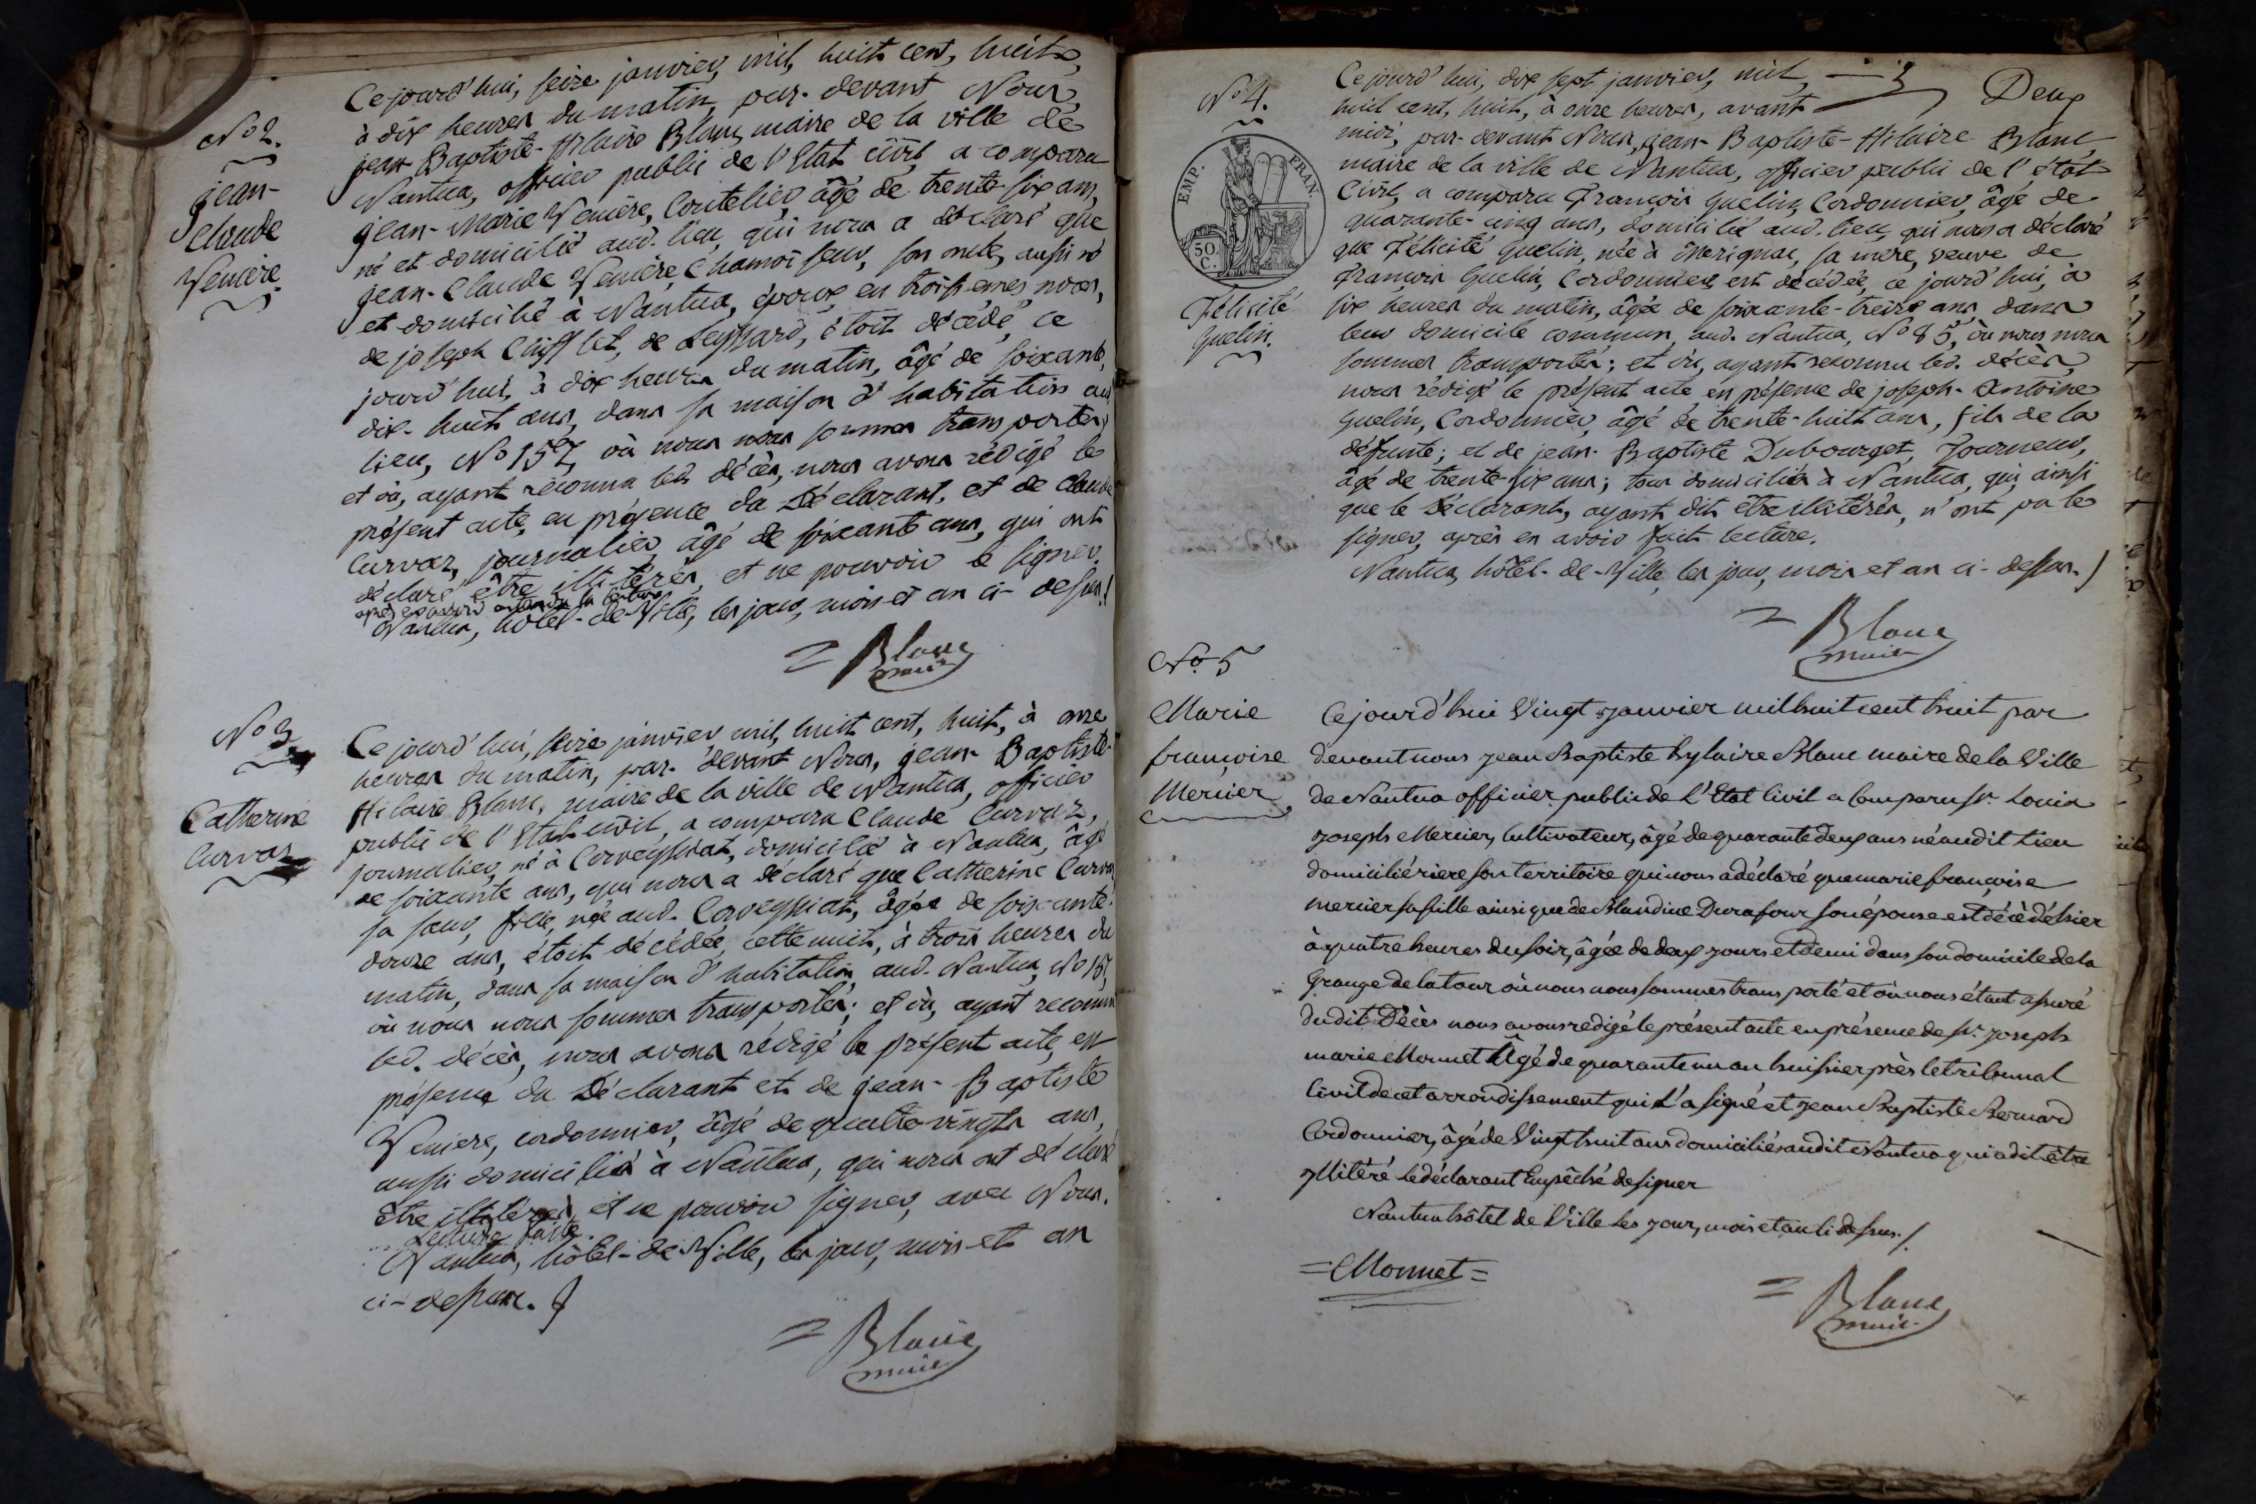 Ce jourd'hui, seize janvier, mil, huit cent, huit,
à dix heures du matin, par-devant Nous,
jean Baptiste-Hilaire Blanc, maire de la ville de
Nantua, officier public de l'Etat civil, a comparu
jean-Marie Venière, Coutelier, âgé de trente-six ans,
né et domicilié aud. lieu, qui nous a déclaré que
jean-Claude Venière, Chamoiseur, son oncle, aussi né
et domicilié à Nantua, époux, en troisièmes noces,
de joseph Chifflet, de Leyssard, étoit décédé, ce
jourd'hui, à dix heures du matin, âgé de soixante
dix-huit ans, dans sa maison d'habitation aud.
lieu, No 157, où nous nous sommes transportés,
et où, ayant reconnu led. décès, nous avons rédigé le
présent acte, en présence du Déclarant, et de Claude
Curvaz, journalier, âgé de soixante ans, qui ont
déclaré être illitérés, et ne pouvoir le signer,
après en avoir entendu la lecture.
Nantua, hôtel-de-Ville, les jour, mois et an ci-dessus./
= Blanc
maire
No 2.
jean-
Claude
Venière.
No 3
Catherine
Curvaz
Ce jourd'hui, seize janvier mil, huit cent, huit, à onze
heures du matin, par-devant Nous, jean-Baptiste-
Hilaire Blanc, maire de la ville de Nantua, officier
public de l'Etat civil, a comparu Claude Curvaz,
journalier, né à Corveyssiat, domicilié à Nantua, âgé
de soixante ans, qui nous a déclaré que Catherine Curvaz
sa sœur, fille, née aud. Corveyssiat, âgée de soixante-
douze ans, étoit décédée, cette nuit, à trois heures du
matin, dans sa maison d'habitation, aud. Nantua, No 157,
où nous nous sommes transportés; et où, ayant reconnu
led. décès, nous avons rédigé le présent acte, en
présence du Déclarant et de jean-Baptiste
Veniere, cordonnier, âgé de quatre-vingts ans,
aussi domicilié à Nantua, qui nous ont déclaré
être illitérés, et ne pouvoir signer, avec Nous.
Lecture faite.
Nantua, hôtel-de-Ville, les jour, mois et an
ci-dessus.
= Blanc
maire
Deux
No 4.
EMP. FRAN.
50 C.
Félicité
Guelin.
Ce jourd'hui, dix sept janvier, mil
huit cent, huit, à onze heures, avant
midi, par-devant Nous, jean-Baptiste-Hilaire Blanc
maire de la ville de Nantua, officier public de l'état
Civil, a comparu François Guelin, Cordonnier, âgé de
quarante-cinq ans, domicilié aud. lieu, qui nous a déclaré
que Félicité Guelin, née à Mérignac, sa mère, veuve de
François Guelin, Cordonnier, est décédée, ce jourd'hui, à
six heures du matin, âgée de soixante-treize ans, dans
leur domicile commun, aud. Nantua, No 85, où nous nous
sommes transportés; et où, ayant reconnu led. décès,
nous rédigé le présent acte en présence de joseph-Antoine
Guelin, Cordonnier, âgé de trente-huit ans, fils de la
défunte; et de jean-Baptiste Dubourget, Tourneur,
âgé de trente-six ans; tous domiciliés à Nantua, qui, ainsi
que le Déclarant, ayant dit être illitérés, n'ont pu le
signer, après en avoir fait lecture.
Nantua, hôtel-de-Ville, les jour, mois et an ci-dessus./
= Blanc
maire
No 5
Marie
françoise
Mercier
Cejourd'hui Vingt janvier mil huit cent huit par
devant nous jean Baptiste hylaire Blanc maire de la Ville
de Nantua officier public de L'Etat Civil a Comparu Sr. Louis
joseph Mercier, Cultivateur, âgé de quarante deux ans né audit Lieu
domicilié riere son territoire qui nous a déclaré que marie françoise
mercier sa fille ainsi que de Blandine Durafour son épouse est décèdé hier
à quatre heures du soir, âgée de deux jours et demi dans son domicile de la
Grange de la tour où nous nous sommes transporté et où nous étant assuré
dudit Décès nous avons redigé le présent acte en présence de Sr. joseph
marie Monnet Agé de quarante un an huissier près le tribunal
Civil de cet arrondissement qui L'a signé et jean Baptiste Bernard
Cordonnier, âgé de Vingt huit ans domiciliés audit Nantua qui a dit être
yllitéré le déclarant Empêché de signer
Nantua hôtel de Ville les jour, mois et an ci dessus./.
= Monnet =
= Blanc
maire